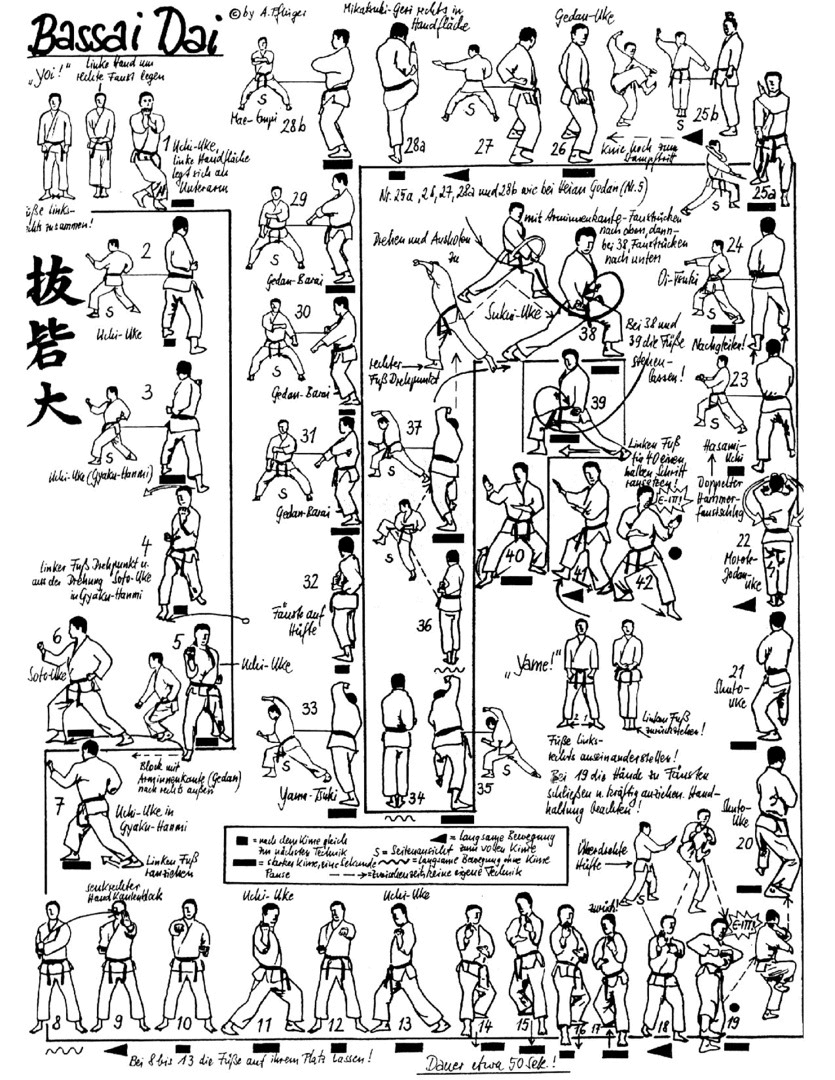 Bassai Dai
© by A. Pflüger
"Yoi!"
linke Hand um
rechte Faust legen
1 Uchi-Uke,
linke Handfläche
legt sich als
Unterarm
Füße links-
rechts zusammen!
抜
砦
大
2
S
Uchi-Uke
3
S
Uchi-Uke (Gyaku-Hanmi)
4
Linker Fuß Drehpunkt u.
aus der Drehung Soto-Uke
in Gyaku-Hanmi
5
Uchi-Uke
6
Soto-Uke
Block mit
Arminnenkante (Gedan)
nach rechts außen
7
Uchi-Uke in
Gyaku-Hanmi
Linken Fuß
ranziehen
senkrechter
Handkantenblock
8
9
10
Uchi-Uke
11
12
Uchi-Uke
13
14
15
16
17
zurück!
18
19
E-IT!!
Bei 8 bis 13 die Füße auf ihrem Platz lassen!
Dauer etwa 50 Sek.!
Überdrehte
Hüfte
S
Shuto-
Uke
20
21
Shuto-
Uke
22
Morote-
Jodan-
Uke
Doppelter
Hammer-
faustschlag
Hasami-
Uchi
23
S
Nachgleiten!
24
Oi-Tsuki
S
25a
S
25b
S
Knie hoch zum
Stampftritt
Gedan-Uke
26
27
S
Mikatsuki-Geri rechts in
Handfläche
28a
28b
S
Mae-
Nr. 25a, 26, 27, 28a und 28b wie bei Heian Godan (Nr. 5)
29
S
Gedan-Barai
30
S
Gedan-Barai
31
S
Gedan-Barai
32
Fäuste auf
Hüfte
33
S
Yama-Tsuki
34
35
S
36
37
S
S
Drehen und Ausholen
zu
rechter
Fuß Drehpunkt
mit Arminnenkante-Faustrücken
nach oben, dann
bei 38, Faustrücken
nach unten
S
Sukui-Uke
38
Bei 38 und
39 die Füße
stehen-
lassen!
39
Linken Fuß
für 40 einen
halben Schritt
raussetzen!
40
41
42
E-IT!!
"Yame!"
Linken Fuß
zurückziehen!
Füße links-
rechts auseinanderstellen!
Bei 19 die Hände zu Fäusten
schließen u. kräftig anziehen. Hand-
haltung beachten!
= nach dem Kime gleich
zur nächsten Technik
= starkes Kime, eine Sekunde
Pause
= langsame Bewegung
zum vollen Kime
S = Seitenansicht
= langsame Bewegung ohne Kime
= Zwischenzeit/keine eigene Technik